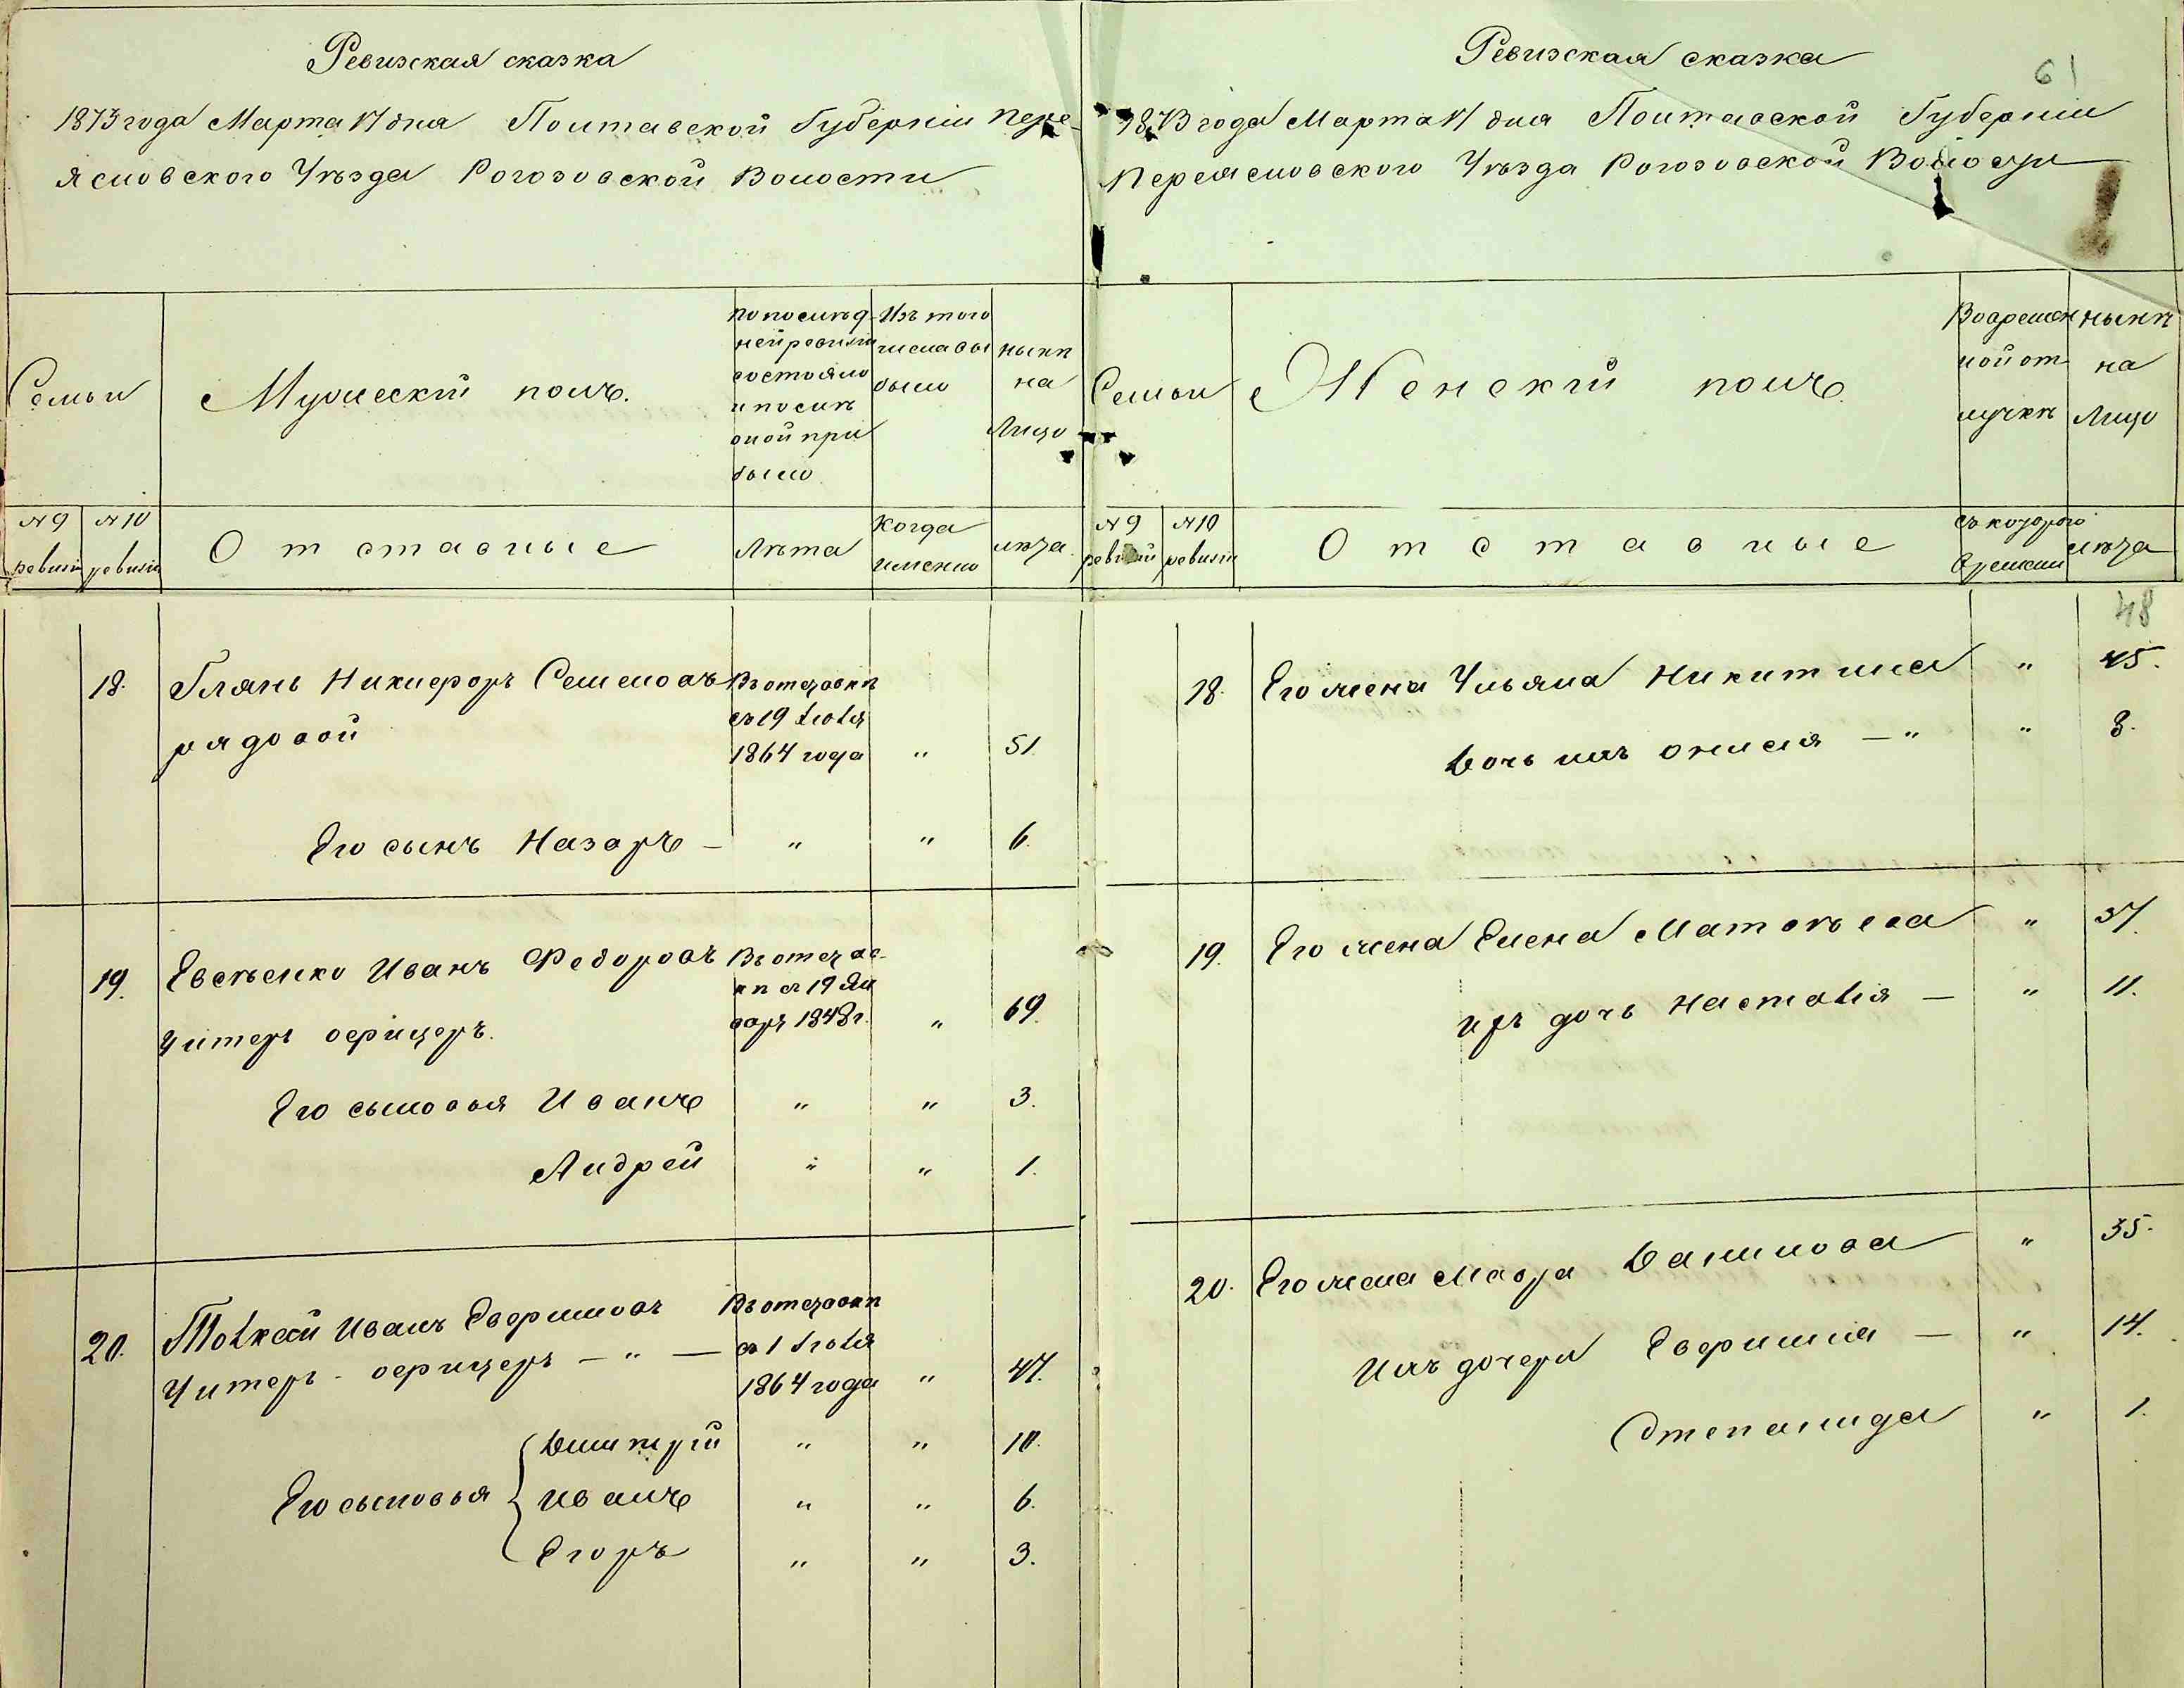 Ревизская сказка
1873 года Марта 17 дня Полтавской Губерніи Пере-
яславского Уѣзда Рогозовской Волости
Семьи
Мужескій полъ.
По послѣд
ней ревизіи
состояло
и послѣ
оной при
было
Изъ того
числа вы
было
нынѣ
на
Лицо
№ 9
ревизіи
№ 10
ревизіи
Отставные
Лѣта
Когда
именно
лѣта
18.
Глянь Никифоръ Семеновъ
рядовой
Въ отставкѣ
съ 19 Іюля
1864 года
"
51.
Его сынъ Назаръ – " " 6.
19.
Евсѣенко Иванъ Федоровъ
Унтеръ офицеръ.
Въ отстав-
кѣ съ 19 Ян
варя 1848 г.
"
69.
Его сыновья Иванъ " " 3.
Андрей " " 1.
20.
Иванъ
Унтеръ - офицеръ – " –
Въ отставкѣ
съ 1 Іюля
1864 года
"
47.
Его сыновья
Дмитрій " " 10.
Иванъ " " 6.
Егоръ " " 3.
Ревизская сказка
61
1873 года Марта 17 дня Полтавской Губерніи
Переяславского Уѣзда Рогозовской Волости
Семьи
Женскій полъ
Во времен
ной от
лучкѣ
нынѣ
на
Лицо
№ 9
ревизіи
№ 10
ревизіи
Отставные
съ которого
времени
лѣта
48
18. Его жена Ульяна Никитина " 45.
Дочь ихъ Онисія – " " 8.
19. Его жена Елена Матвѣева " 37.
ихъ дочь Настасія – " 11.
20. Его жена Мавра Данилова " 35.
Ихъ дочери – " 14.
Степанида " 1.